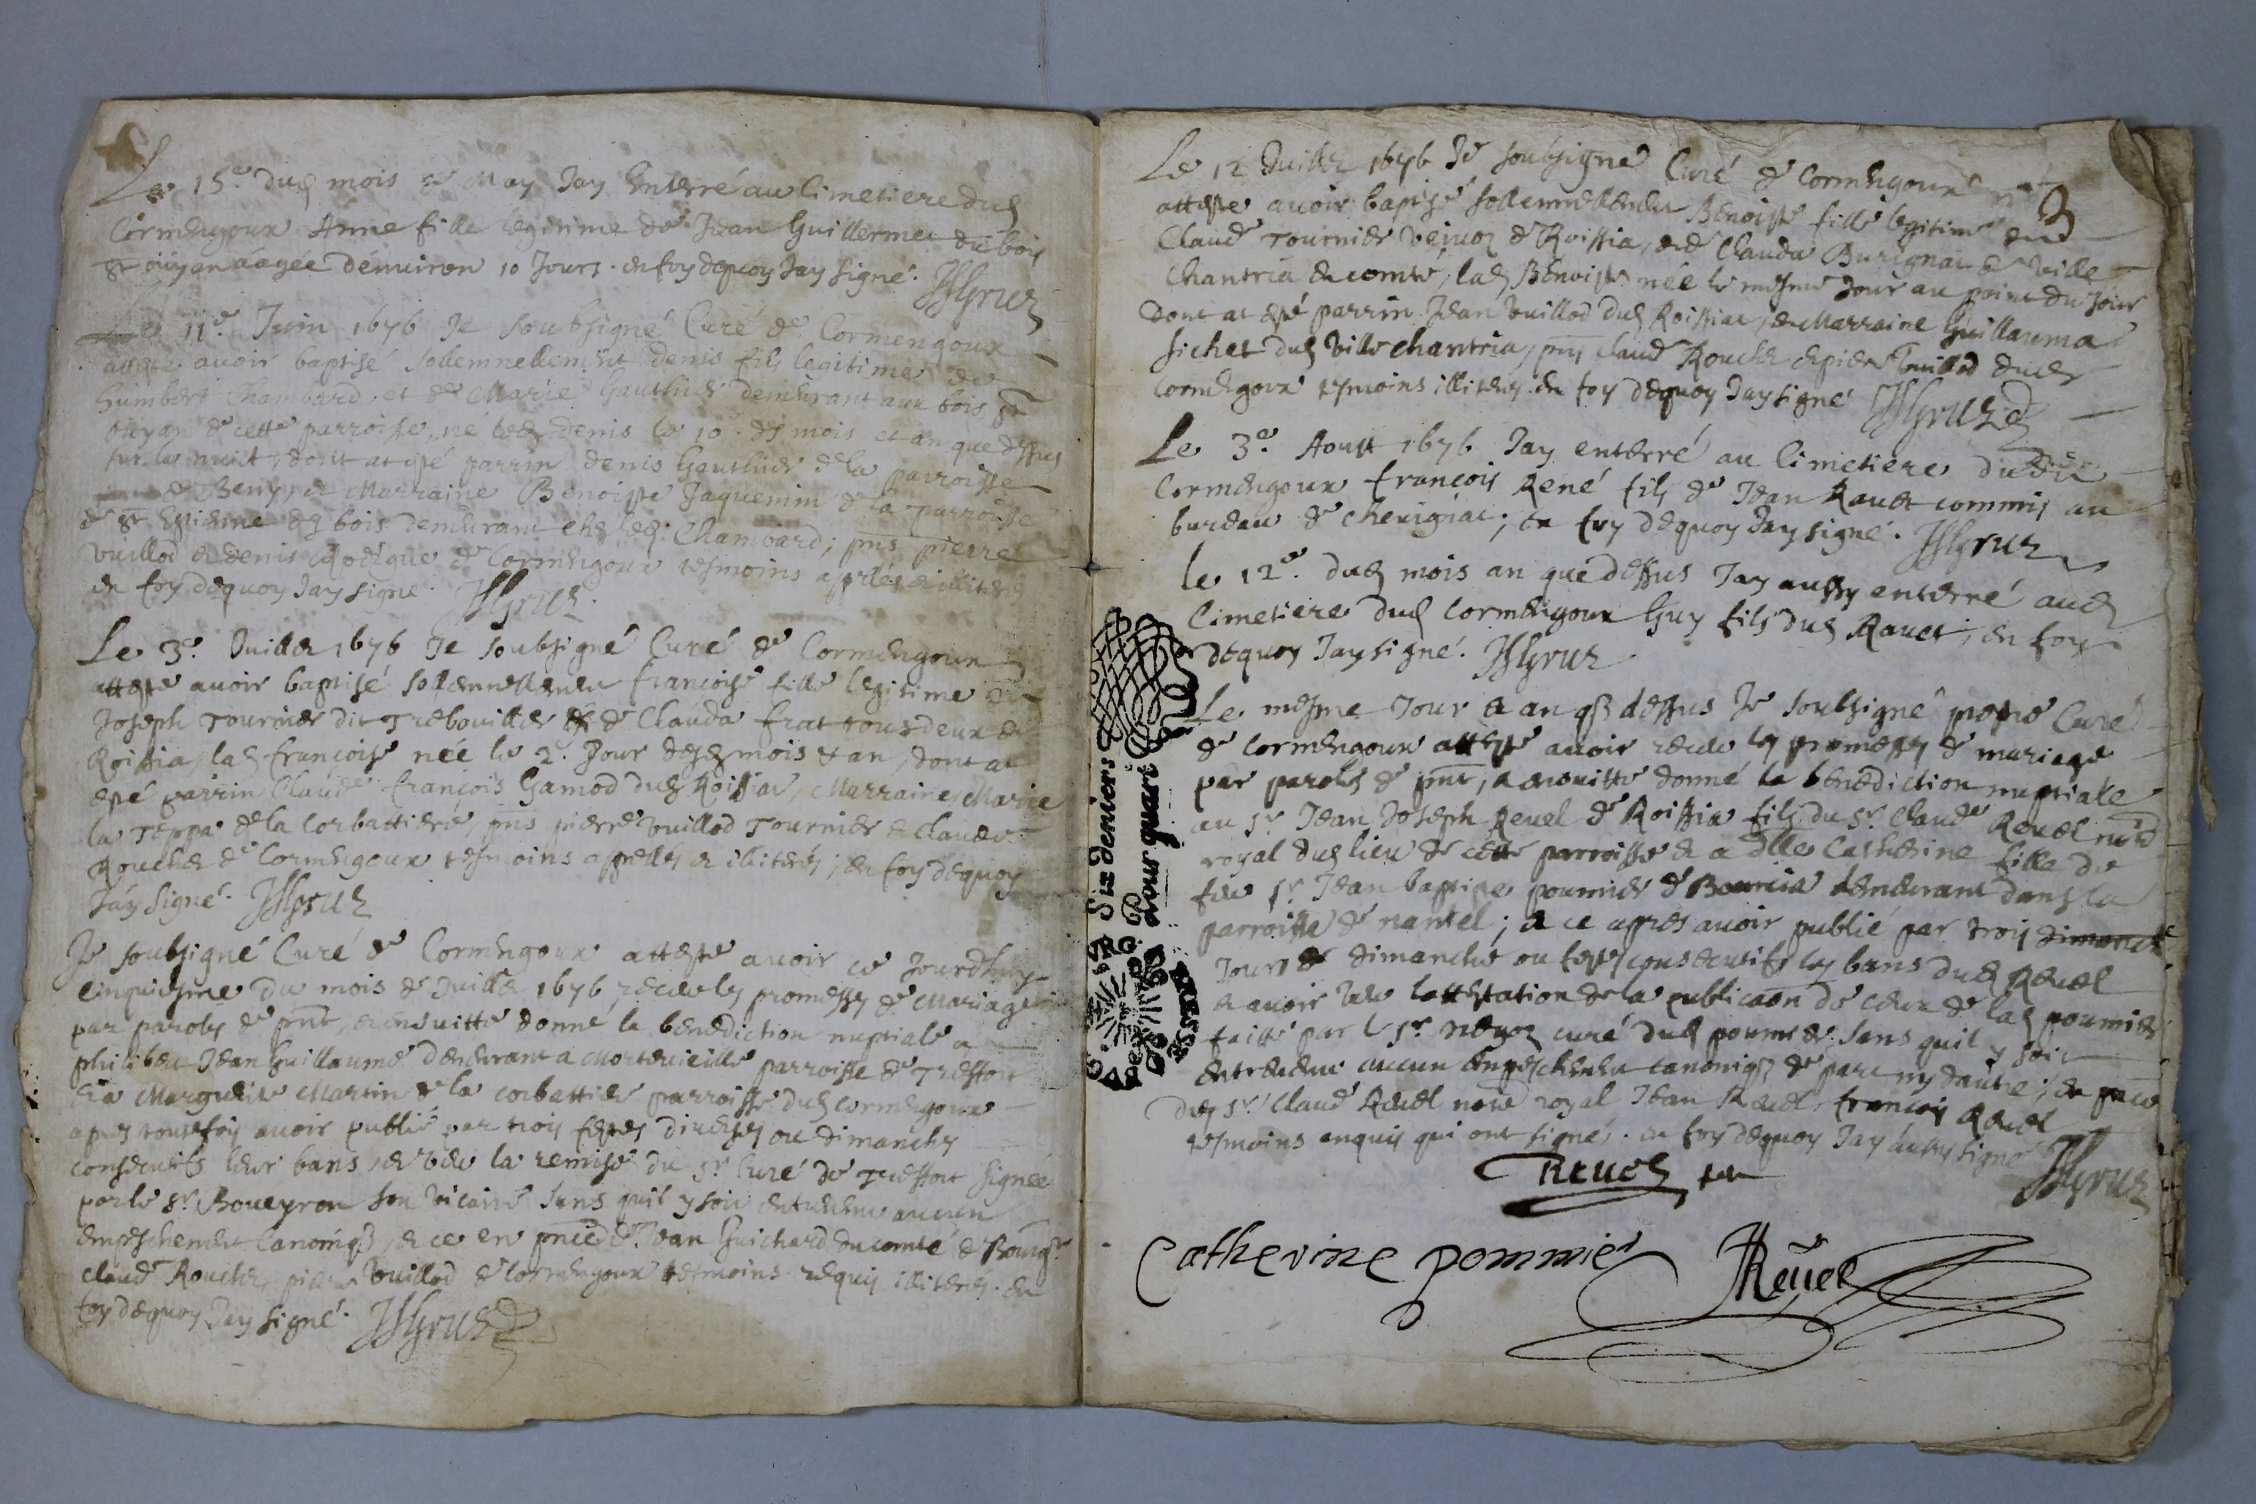 Le 15e dud mois de May Jay Enterré au Cimetiere dud
Cormengoux Anne fille legitime de Jean Guillermet du bois
St ouyan áagee denuiron 10 Jours. en foy dequoy Jay Signé.
Le 11e Juin 1676 Je Soubsigné Curé de Cormengoux
atteste avoir baptisé Sollemnellement denis fils legitime de
humbert Chambard et de Marie Gauthier demeurant aux bois St
ouyan de cette parroisse, né led denis le 10. des mois et an que dessus
sur la nuict, dont at esté parrin denis Gauthier de la parroisse
de Beny, et Marraine Benoiste Jaquemin de la parroisse
de St Estienne des bois demeurant ches led. Chambard; pns pierre
vuillod et denis de Cormengoux tesmoins appellés et illiterés
en foy dequoy Jay signé.
Le 3e. Juillet 1676 Je soubsigné Curé de Cormengoux
atteste avoir baptisé Sollemnellement francoise fille legitime de
Joseph Tournier dit Trebouillet et de Clauda frat tous deux de
Roissia, lad francoise née le 2. Jour desd mois et an, dont at
esté parrin Claude francois Gamod dud Roissia, Marraine Marie
la Teppa de la Corbattiere, pns pierre vuillod Tournier et Claude
Rouchet de Cormengoux tesmoins appellés et illiterés; en foy dequoy
Jáy Signé.
Je soubsigné Curé de Cormengoux atteste avoir ce Jourdhuy
Cinquiesme du mois de Juillet 1676 receu les promesses de Mariage
par paroles de pnt, et ensuitte donné la benediction nuptiale a
philibert Jean Guillaume demeurant a Mortevieille parroisse de Treffort
et a Marguerite Martin de la corbattier parroisse dud Cormengoux
apres toutefois avoir publié par trois festes diverses ou dimanches
consecutifs leur bans, et veu la remise du sr Curé de Treffort signée
par le sr. Boueyron son vicaire sans quil y soit entrevenu aucun
empeschement Canoniq, et ce en pnce de Jean Guichard du comté de Bourgne
claude Rouchet, pierre vuillod de Cormengoux tesmoins requis illiterés. en
foy dequoy Jay signé.
Le 12 Juillet 1676 Je soubsigné Curé de Cormengoux
3
atteste avoir baptisé sollemnellement Benoiste fille legitime de
Claude Tournier de Roissia, et de Clauda Burignat de ville
Chantria en comté, lad Benoiste née le mesme Jour au point du Jour
dont at esté parrin Jean vuillod dud Roissiat, et Marraine Guillauma
sichet dud ville chantria, pns Claude Rouchet et pierre vuillod dud
Cormengoux tesmoins illiterés. en foy dequoy Jay signé
Le 3e. Aoust 1676 Jay enterré au Cimetiere dudit
Cormengoux francois René fils de Jean Ravet commis au
bureau de chevigniat; en foy dequoy Jay signé.
Le 12e. dud mois an que dessus Jay aussy enterré aud
Cimetiere dud Cormengoux Guy fils dud Ravet, en foy
dequoy Jay signé.
Le mesme Jour et an q dessus Je soubsigné Curé
de Cormengoux atteste avoir receu les promesses de mariage
par paroles de pnt, et ensuitte donné la benediction nuptiale
au sr. Jean Joseph Revel de Roissia fils du sr. Claude Revel
royal dud lieu de cette parroisse et a dlle Catherine fille de
feu sr. Jean baptiste pommier de demeurant dans la
parroisse de nantel; et ce apres avoir publié par trois dimanche
Jours de dimanche ou festes consecutifs les bans dud Revel
et avoir veu lattestation de la publicaon de ceux de lad pommier
faitte par le sr. curé dud pommier. Sans quil y soit
entrevenu aucun empeschement canoniq de part ny dautre; en pnce
dud sr. Claude Revel royal Jean Revel, francois Revel
tesmoins enquis qui ont signés. en foy dequoy Jay aussy signé
Revel
Catherine pommier
Revel
Six deniers
pour quart
BRESSE